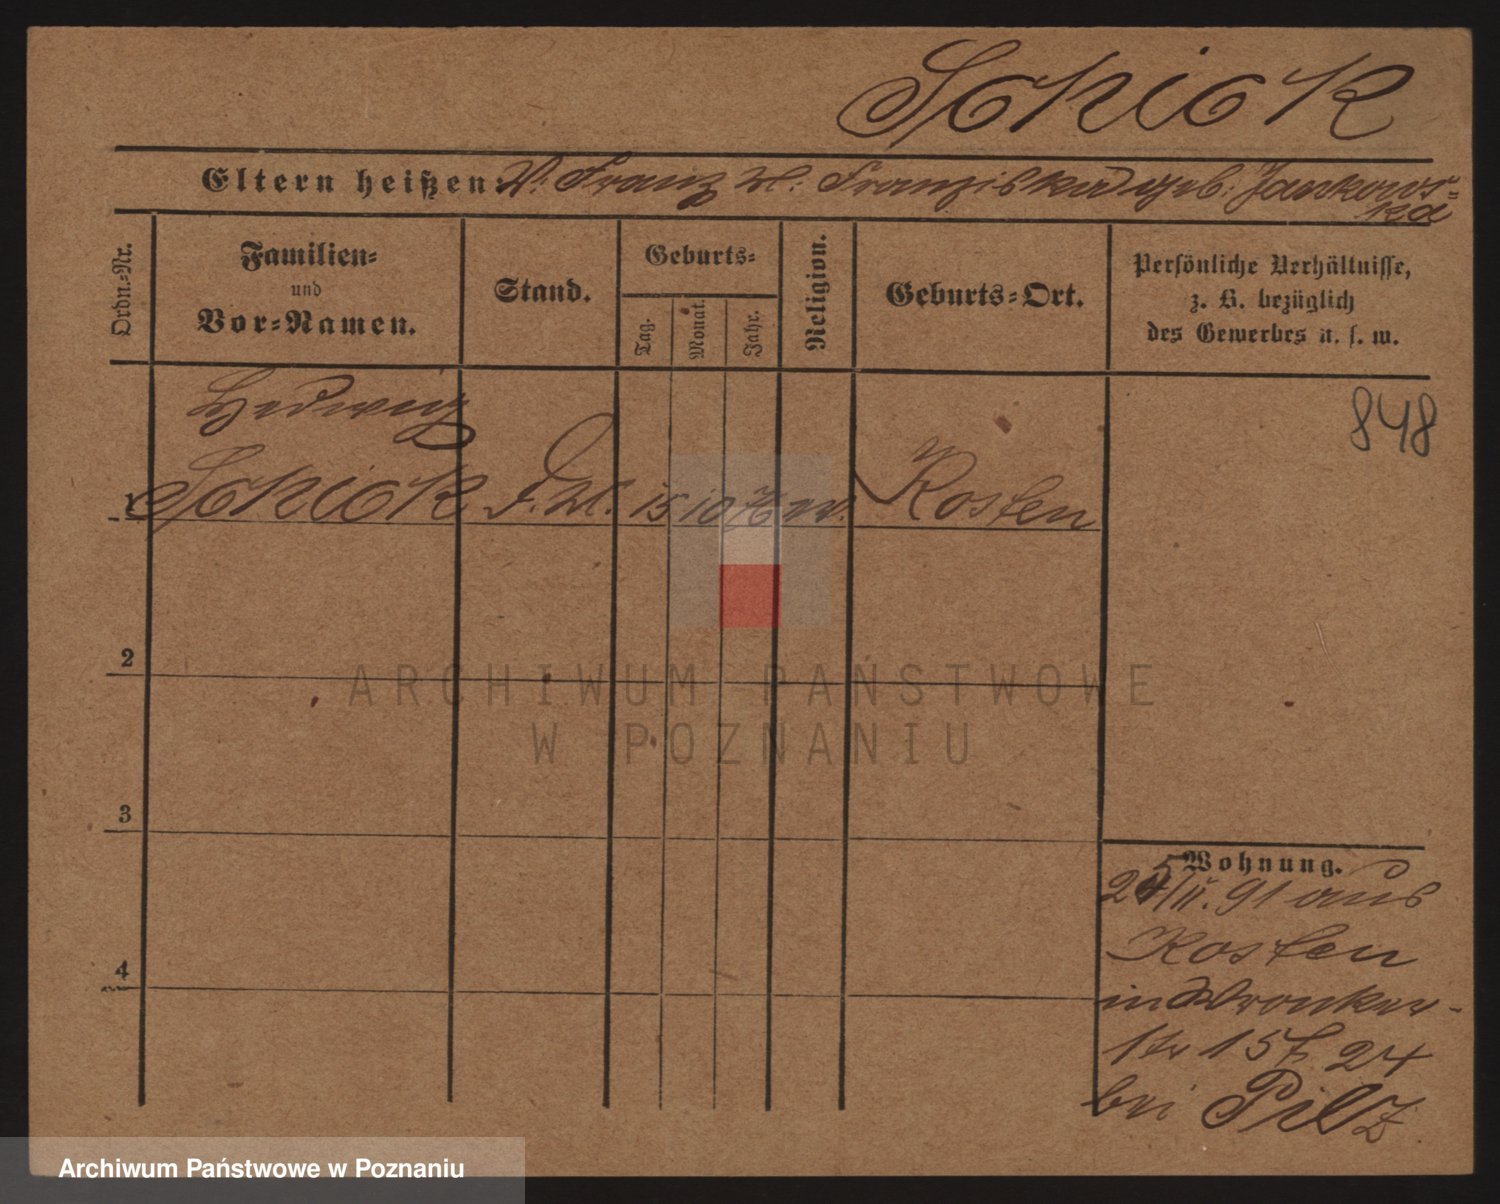 Sckick
Eltern heißen: V. Franz M. Franziska geb. Jankows=
ka
Ordn.=Nr.
Familien=
und
Vor=Namen.
Stand.
Geburts=
Tag.
Monat.
Jahr.
Religion.
Geburts=Ort.
Persönliche Verhältnisse,
z. B. bezüglich
des Gewerbes u. s. w.
848
Hedwig
1 D. M. 15 10 76 Kosten
2
3
4
Wohnung.
/11. 91 aus
Kosten
in Wronker-
str 15 24
bei Pilz
ARCHIWUM PAŃSTWOWE
W POZNANIU
Archiwum Państwowe w Poznaniu